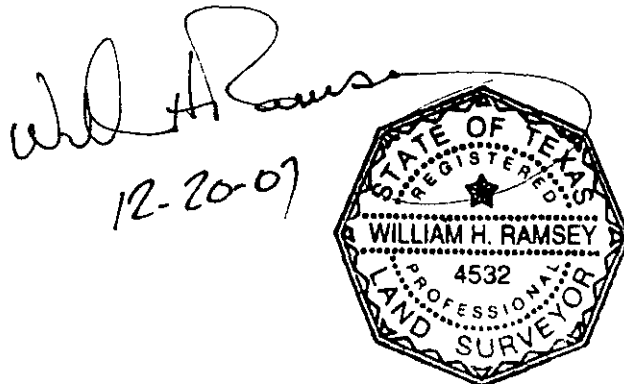 Will H Ramsey
12-20-07
STATE OF TEXAS
REGISTERED
WILLIAM H. RAMSEY
4532
PROFESSIONAL
LAND SURVEYOR